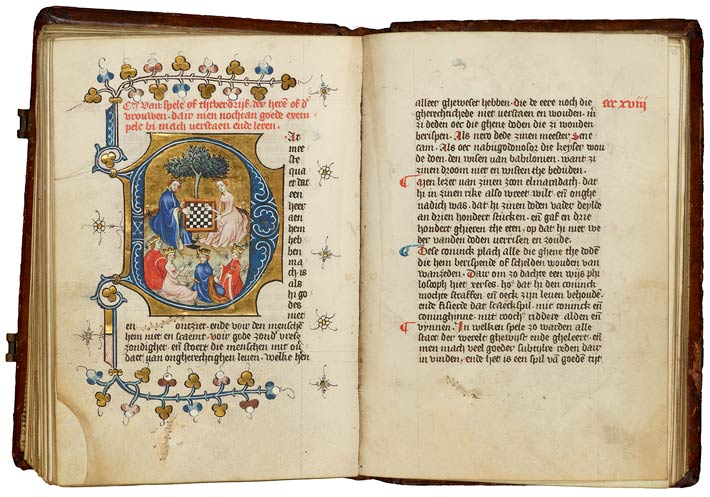 Van spele of tytverdrijf der herē of d'
vrouwen. dair men nochtan goede exem
pele bi mach verstaen ende leren.
Dat
mee
ste
qua
et dat
een
heer
aen
hem
heb
ben
ma
ch is
als
hi go
des
niet
en ontziet ende voir den mensche
hem niet en scaemt. voir gode zond vrese
zondighet en stoert die menschen mit on
daet van ongherechtighen leven. welke hen
alleer gheweset hebben. die de eere noch die
gherechtichede niet verstaen en wouden. m
zi deden oec die ghene doden die zi wouden
berispen. Als nero dede zinen meester Sene
cam. Als oec nabugodonosor die keyser wou
de doen den wisen van babilonien. want zi
zinen droem niet en wisten the beduden.
Men lezet van zinen zoon elmaradath. dat
hi in zine rike also wreet wilt eñ onghe
nadich was. dat hi zinen doden vader deylde
an drien hondert stucken. eñ gaf en drie
hondert ghieren the eten. op dat hi niet we
der vanden doden verrisen en zoude.
Dese coninck plach alle die ghene the dodē
die hem berispende of schelden wouden van
wanzeden. Dair om zo dachte een wijs phi
losoph hiet xerses. hoe dat hi den coninck
mochte straffen. eñ oeck zijn leven behoude.
ende fisierde dat scaeckspil. mit coninck eñ
coninghinne. mit roock ridder alden eñ
vynnen. In welken spele zo warden alle
staet der werelt ghewijst ende gheleert. eñ
men mach veel goeder subtylre reden dair
in vinden. ende het is een spil vā goedē tijt
cc xviij